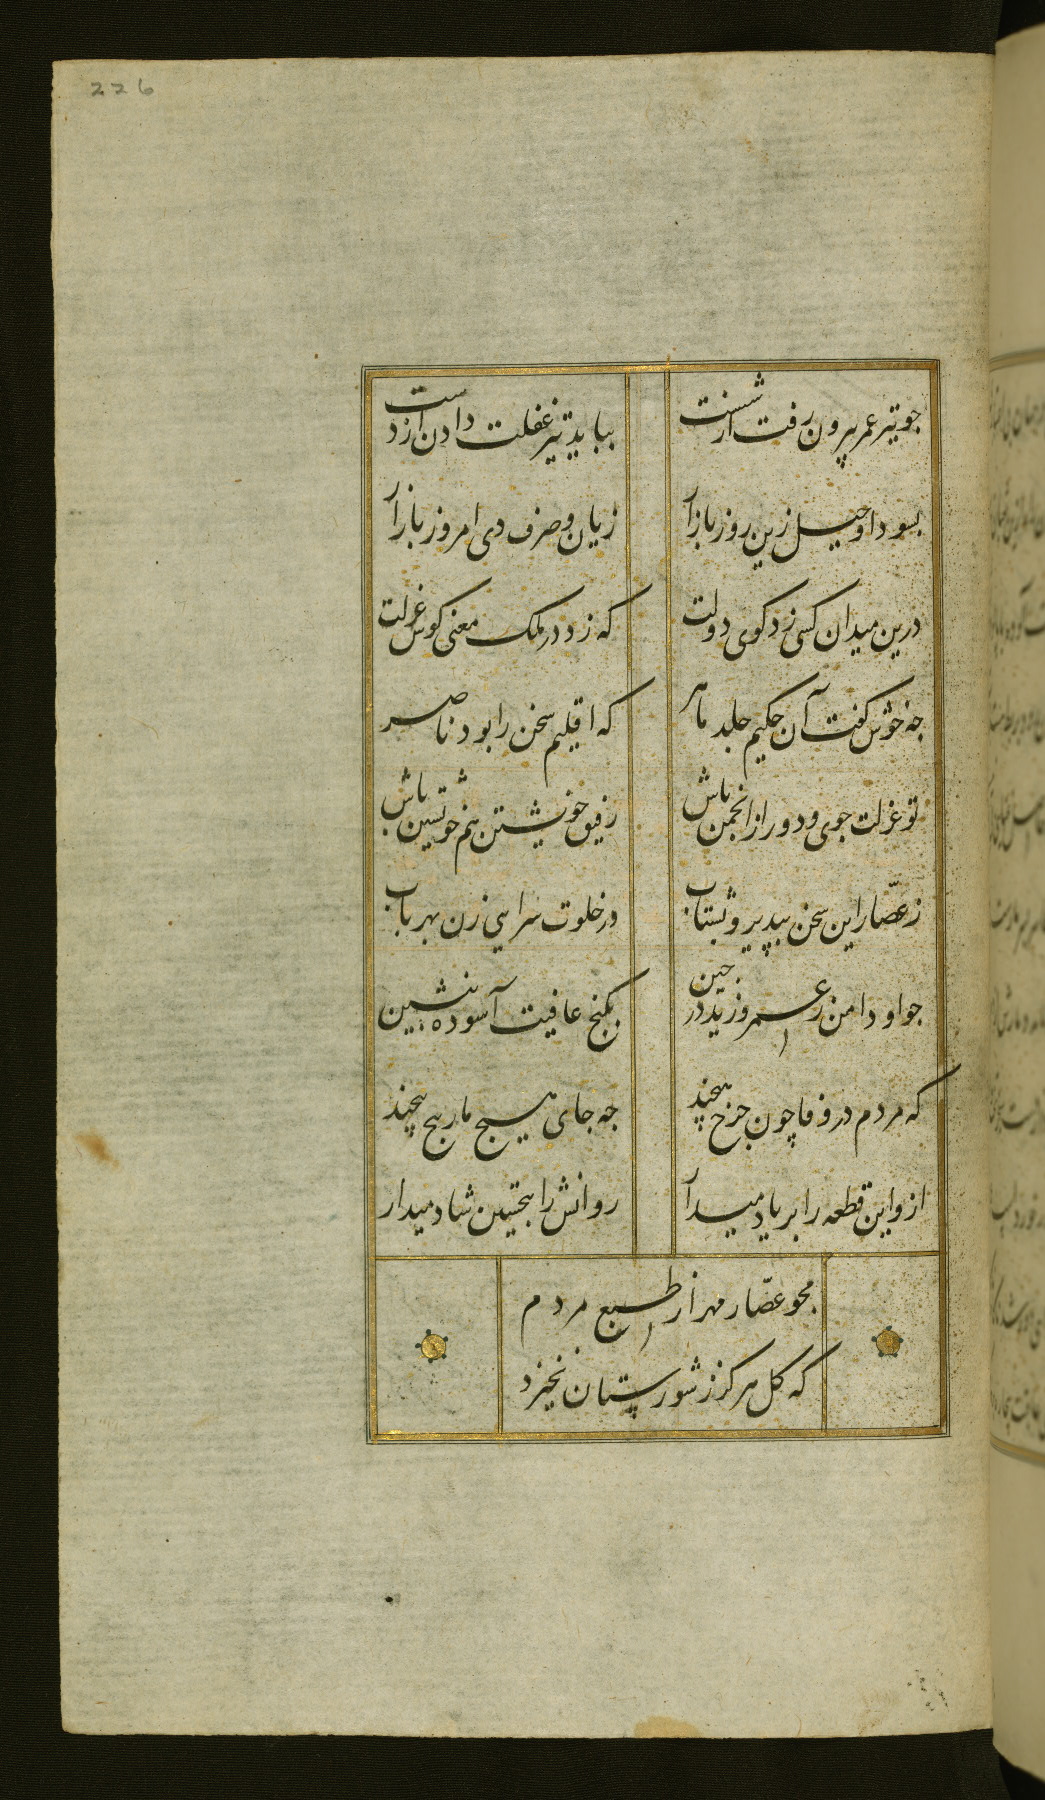 226
جو تیر عمر بیرون رفت از شست
بباید تیر غفلت دادن از دست
بسودا و حیل زین روز بازار
زیان و صرف دی امروز باز آر
درین میدان کسی زد کوی دولت
که زد در ملک معنی کوس عزلت
جه خوش کفت آن حکیم جلد ماهر
که اقلیم سخن را بود ناصر
تو عزلت جوی و دور از انجمن باش
رفیق خویشتن هم خویشتن باش
ز عصّار این سخن بپذیر و بشتاب
در خلوت سرایی زن بهر باب
جو او دامن ز عمرو زید در جین
بکنج عافیت آسوده بنشین
که مردم در وفا چون جرخ هیچند
جه جای هیج مار بیج بیچند
از و این قطعه را بر یاد میدار
روانش را بتحسین شاد میدار
مجو عصّار مهر از طبع مردم
که کل هرکز ز شورستان نخیزد